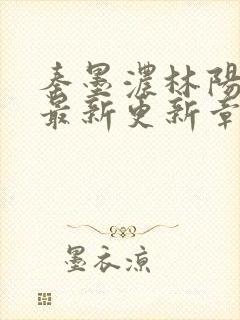 秦墨濃林陽
最新更新章
墨衣涼